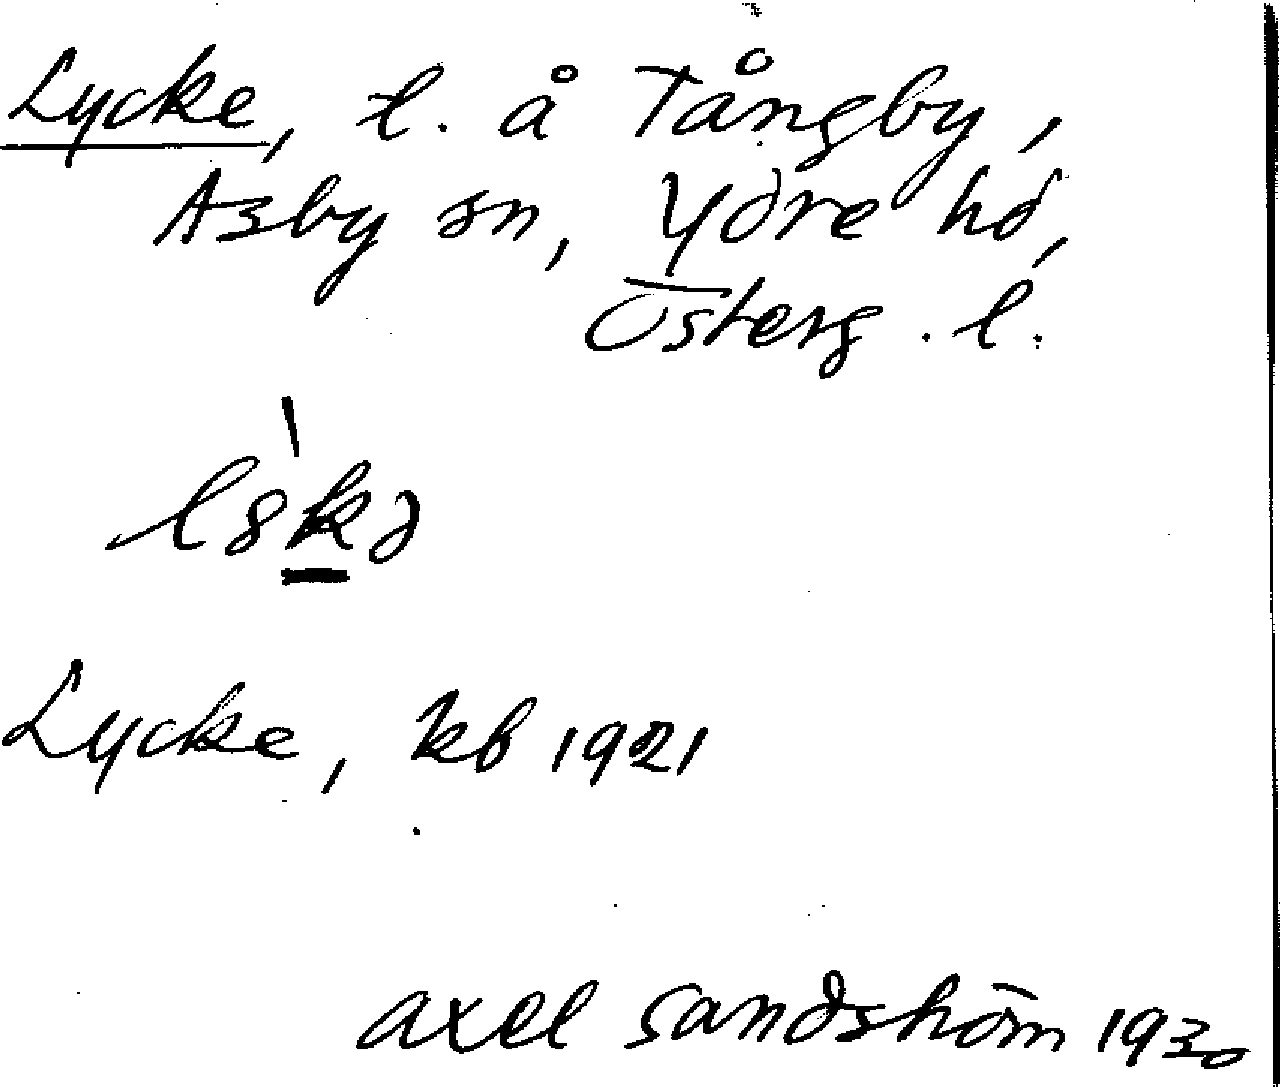 Lycke, t. å Tångby,
Asby sn, Ydre hd,
Österg. l.
Lycke, kb 1921
Axel Sandström 1930